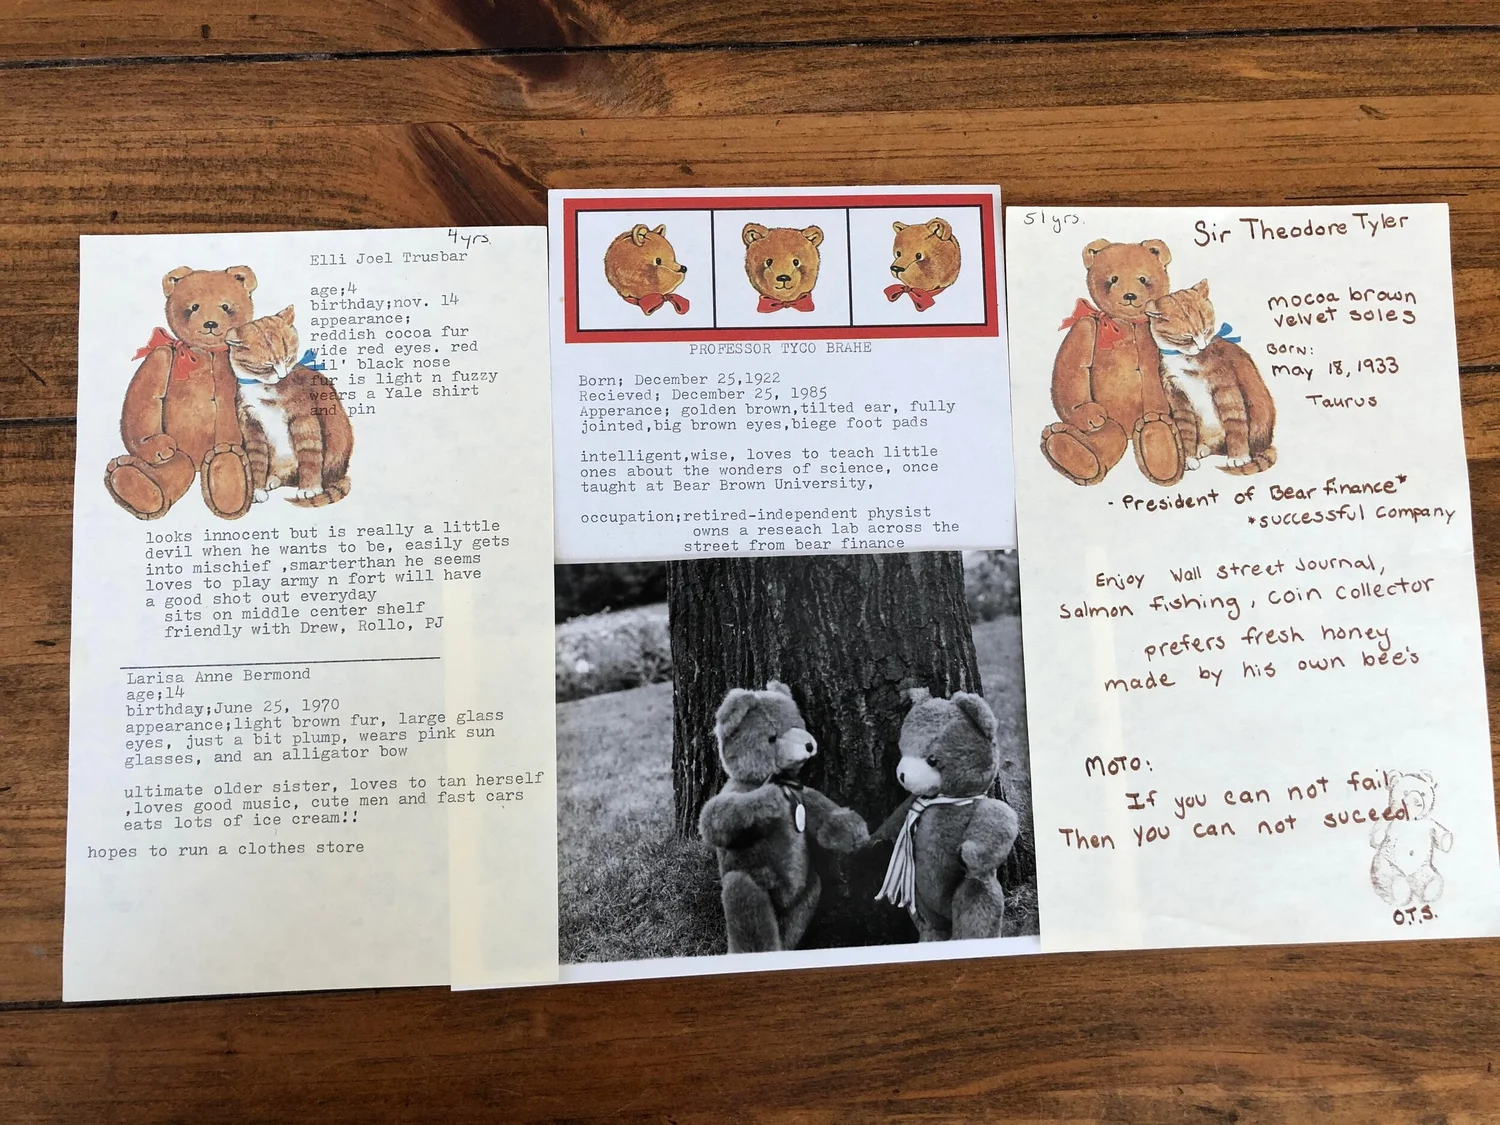 4yrs.
Elli Joel Trusbar
age;4
birthday;nov. 14
appearance;
reddish cocoa fur
wide red eyes. red
lil' black nose
fur is light n fuzzy
wears a Yale shirt
and pin
looks innocent but is really a little
devil when he wants to be, easily gets
into mischief ,smarterthan he seems
loves to play army n fort will have
a good shot out everyday
sits on middle center shelf
friendly with Drew, Rollo, PJ
Larisa Anne Bermond
age;14
birthday;June 25, 1970
appearance;light brown fur, large glass
eyes, just a bit plump, wears pink sun
glasses, and an alligator bow
ultimate older sister, loves to tan herself
,loves good music, cute men and fast cars
eats lots of ice cream!!
hopes to run a clothes store
PROFESSOR TYCO BRAHE
Born; December 25,1922
Recieved; December 25, 1985
Apperance; golden brown,tilted ear, fully
jointed,big brown eyes,biege foot pads
intelligent,wise, loves to teach little
ones about the wonders of science, once
taught at Bear Brown University,
occupation;retired-independent physist
owns a reseach lab across the
street from bear finance
51yrs.
Sir Theodore Tyler
mocoa brown
velvet soles
Born:
may 18, 1933
Taurus
- President of Bear finance*
*successful Company
Enjoy Wall street Journal,
Salmon fishing, coin collector
prefers fresh honey
made by his own bee's
MoTo:
If you can not fail
Then you can not suceed.
O.T.S.